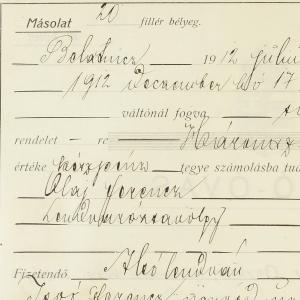 Másolat 20 fillér bélyeg.
Belatincz 1912 júliu
1912 December hó 17
váltónál fogva
rendelet — re Háromsz
értéke készpénz tegye számolásba tud
Alaj Ferencz
Lendvarozsavölgy
Fizetendő Alsólendván
Ferencz